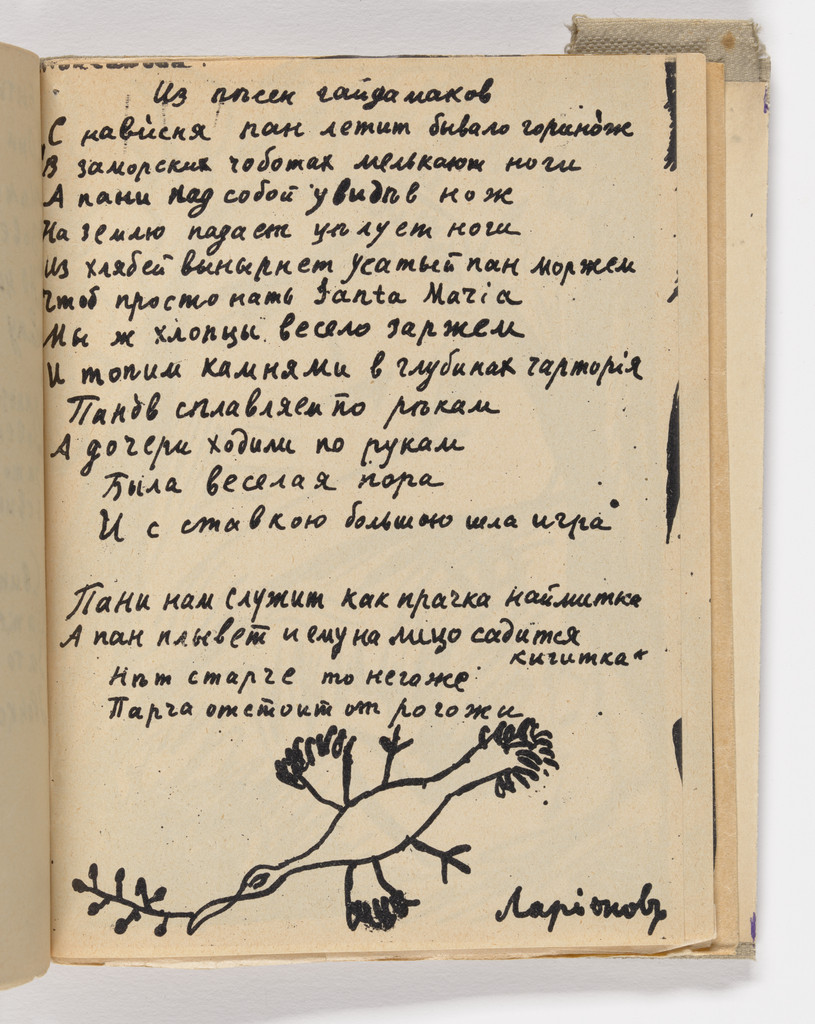 Из пѣсен гайдамаков
„С навíсня пан летит бывало горинож
В заморских чоботах мелькают ноги
А пани над собой увидѣв нож
На землю падает цѣлует ноги
Из хлябей вынырнет усатый пан моржем
Чтоб простонать Santa Maria
Мы ж хлопцы весело заржем
И топим камнями в глубинах чарторія
Панóв сплавляем по рѣкам
А дочери ходили по рукам
Была веселая пора
И с ставкою большою шла игра
Пани нам служит как прачка наймитка
А пан плывет и ему на лицо садится
кигитка"
Нѣт старче то негоже
Парча отстоит от рогожи
Ларіоновъ